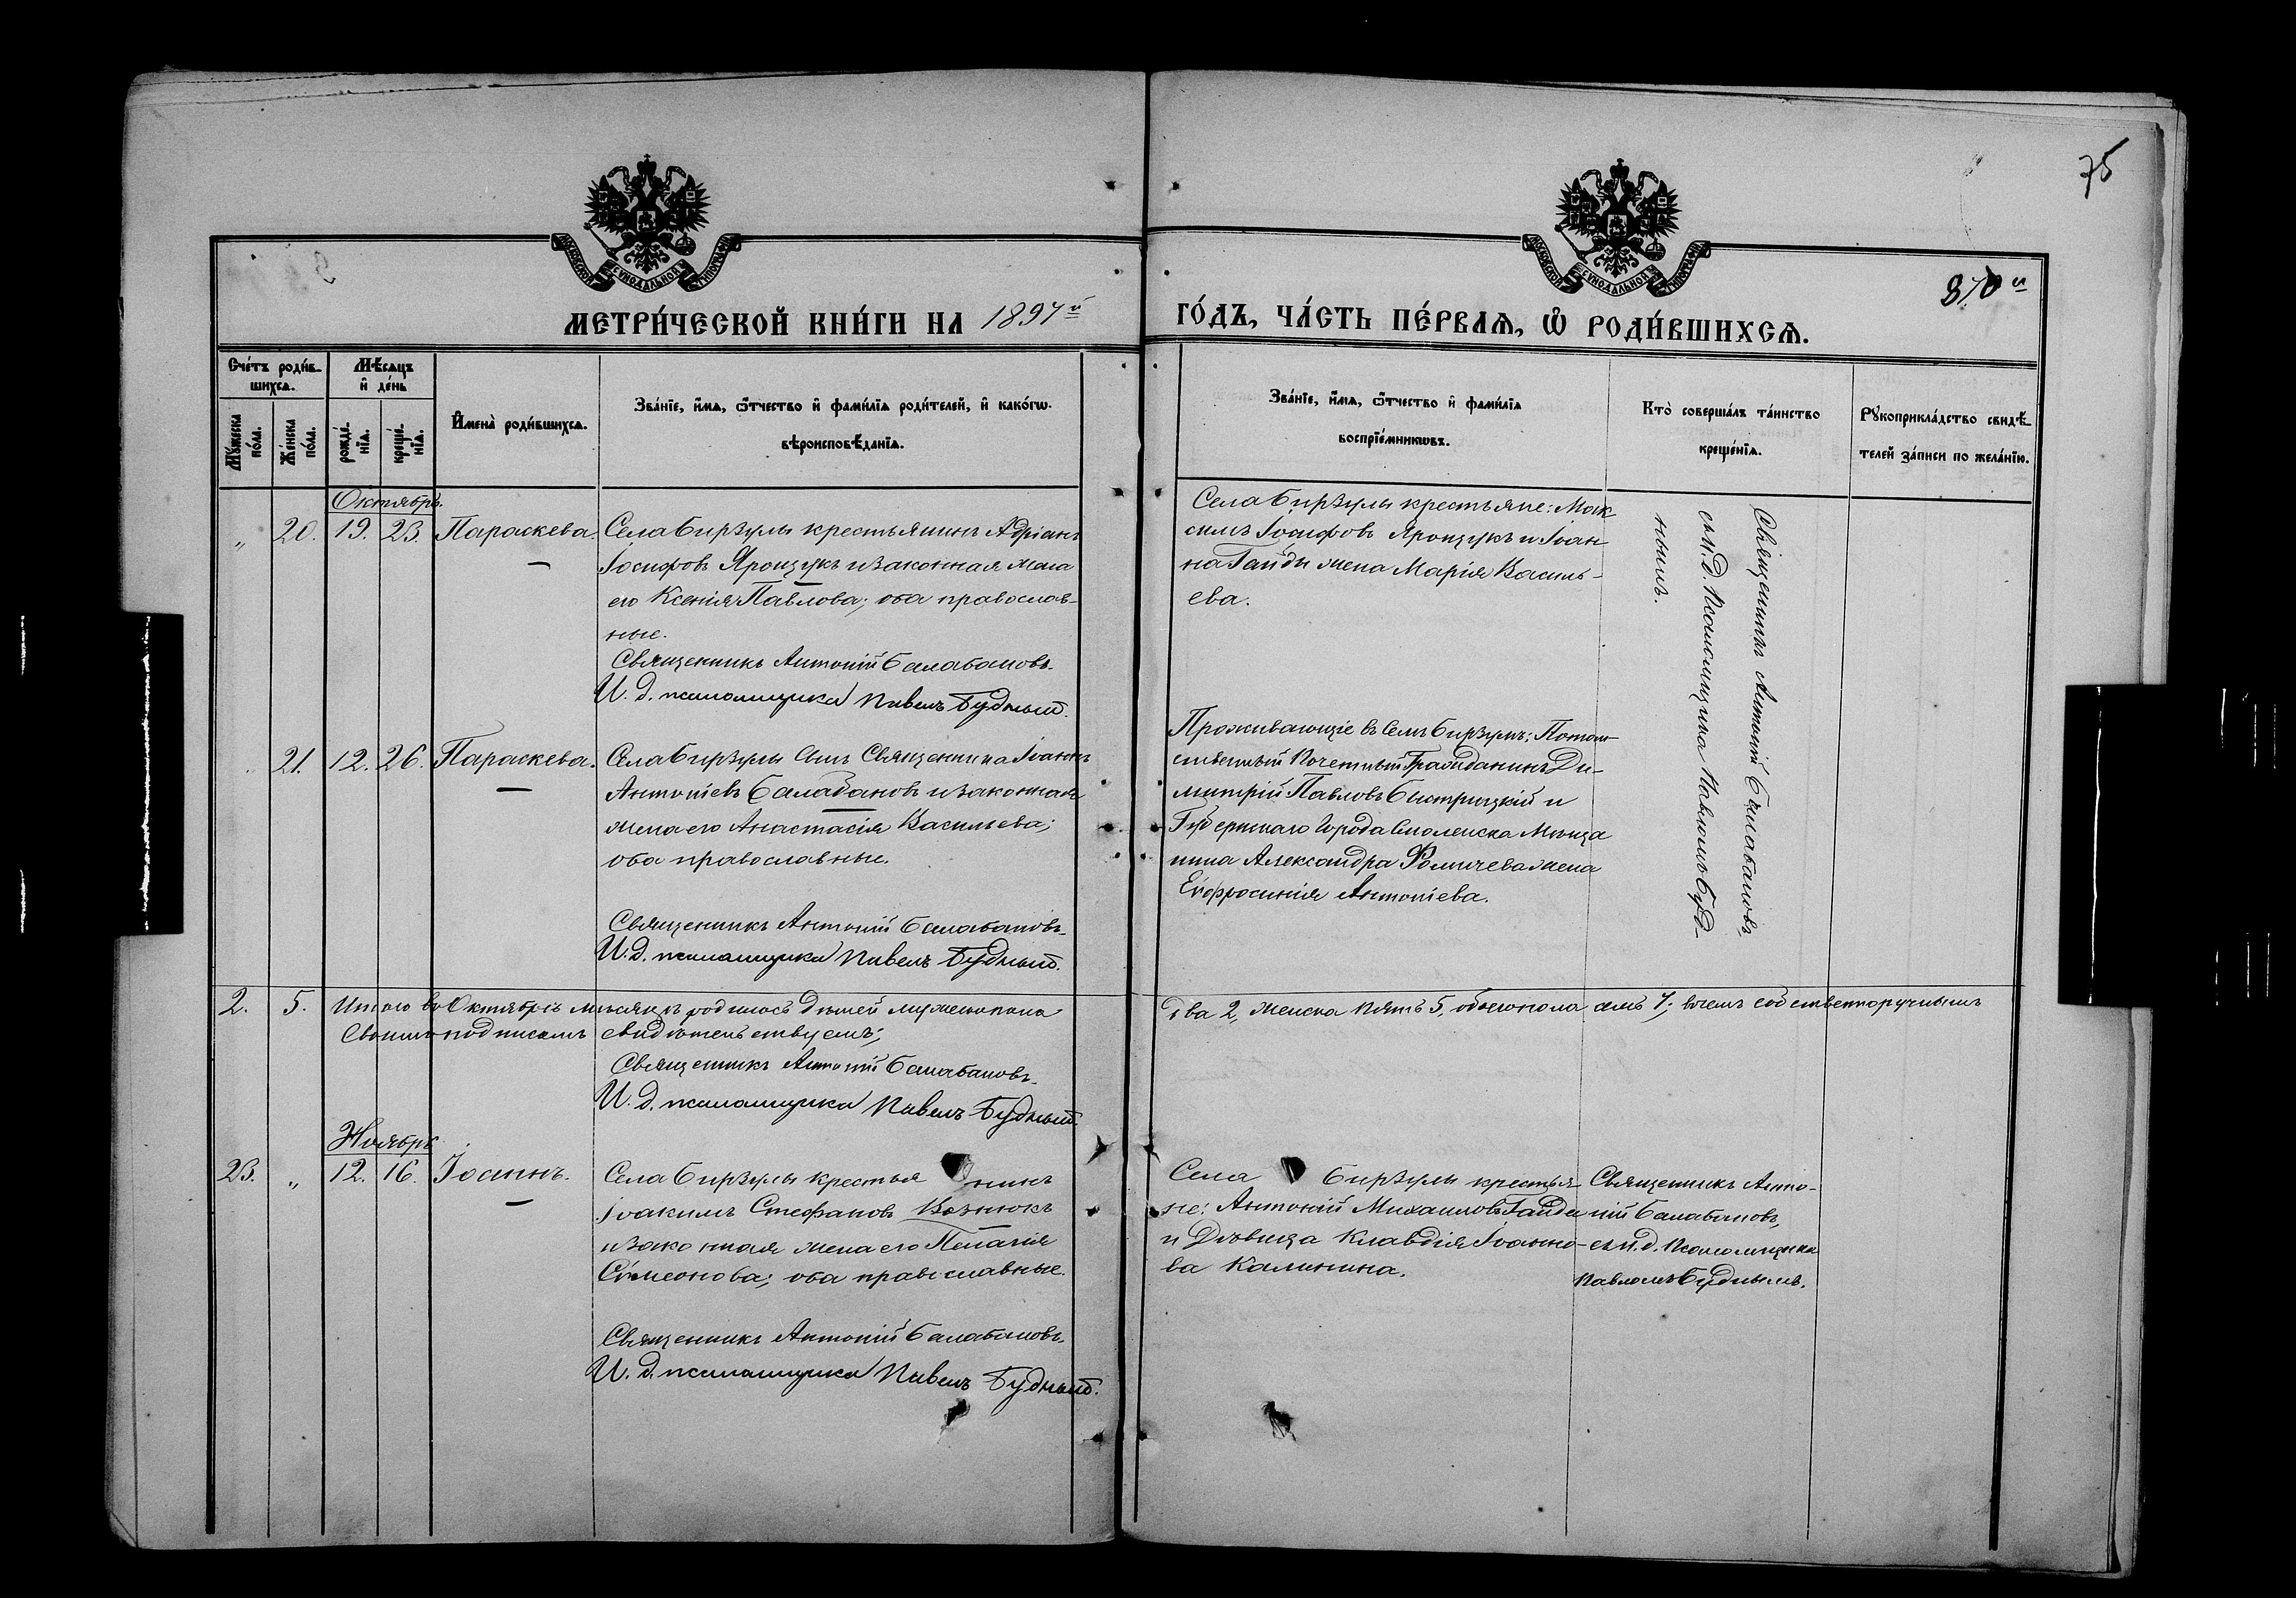 75
МОСКОВСКОЙ СѴНОДАЛЬНОЙ ТИПОГРАФІИ
МОСКОВСКОЙ СѴНОДАЛЬНОЙ ТИПОГРАФІИ
870 и
МЕТРИ́ЧЕСКОЙ КНИ́ГИ НА 1897й
ГО́ДЪ, ЧА́СТЬ ПЕ́РВАѦ, Ѿ РОДИ́ВШИХСѦ.
Сче́тъ роди́в-
шихсѧ.
Мѣсѧцъ
и҆ де́нь
Мꙋ́жеска
по́ла.
Же́нска
по́ла.
рожде́-
нїѧ.
креще́-
нїѧ.
И҆мена̀ роди́вшихсѧ.
Зва́нїе, и҆́мѧ, ѻ҆́тчество и҆ фами́лїѧ роди́телей, и҆ како́гѡ
вѣроисповѣ́данїѧ.
Зва́нїе, и҆́мѧ, ѻ҆́тчество и҆ фами́лїѧ
воспрїе́мникѡвъ.
Кто̀ соверша́лъ та́инство
креще́нїѧ.
Рꙋкоприкла́дство свидѣ́-
телей за́писи по жела́нїю.
Октябрь.
„ 20. 19. 23. Параскева.
Села Бирзулы крестьянинъ Адріанъ
Іосифовъ Ярощукъ и законная жена
его Ксенія Павлова; оба православ-
ные.
Священникъ Антоній Балабановъ.
И. д. псаломщика Павелъ Будный.
Села Бирзулы крестьяне: Мак
симъ Іосифовъ Ярощукъ и Іоан
на Гайды жена Марія Василь-
ева.
Священникъ Антоній Балабановъ,
съ И. д. Псаломщика Павломъ Буд-
нымъ.
„ 21. 12. 26. Параскева.
Села Бирзулы сынъ Священника Іоаннъ
Антоніевъ Балабановъ и законная
жена его Анастасія Васильева;
оба православные.
Священникъ Антоній Балабановъ.
И. д. псаломщика Павелъ Будный.
Проживающіе въ селѣ Бирзулѣ: Потом-
ственный Почетный Гражданинъ Ди-
митрій Павловъ Быстрицкій и
Губернскаго города Смоленска мѣща
нина Александра Фомичева жена
Евфросинія Антоніева.
2. 5. Итого въ Октябрѣ мѣсяцѣ родилось дѣтей мужеска пола
два 2, женска пять 5, обоего пола семь 7; въ чемъ собственноручнымъ
Своимъ подписомъ свидѣтельствуемъ;
Священникъ Антоній Балабановъ.
И. д. псаломщика Павелъ Будный.
Ноябрь
23. „ 12. 16. Іоаннъ.
Села Бирзулы крестья нинъ
Іоакимъ Стефановъ Вознюкъ
и законная жена его Пелагія
Симеонова; оба православные.
Священникъ Антоній Балабановъ.
И. д. псаломщика Павелъ Будный.
Села Бирзулы крестья-
не: Антоній Михаиловъ Гайда
и Дѣвица Клавдія Іоанно-
ва Калинина.
Священникъ Анто-
ній Балабановъ,
съ И. д. Псаломщика
Павломъ Буднымъ.